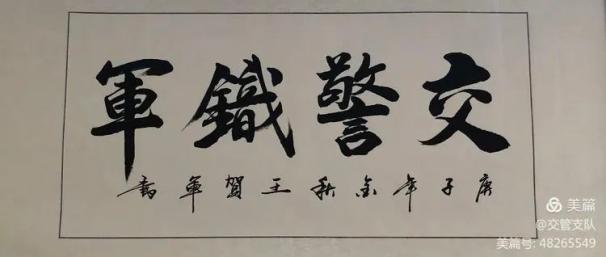 交警鐵軍
庚子年金秋王賀軍書
美篇
@交管支队
美篇号: 48265549